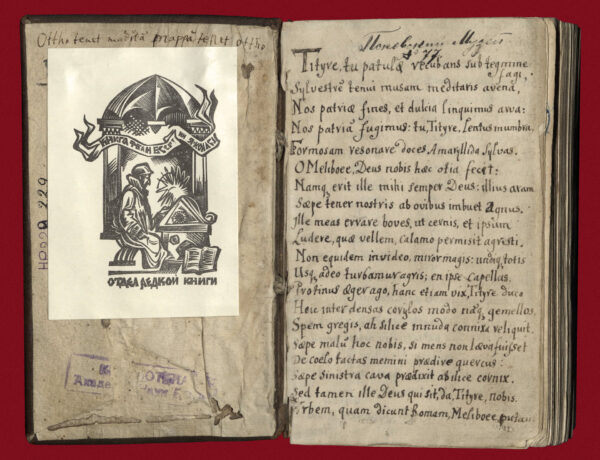 Ottho tenet madidā mappā tenet ottho
КНИГА
229
ОТДЕЛ РЕДКОЙ КНИГИ
77.
Tityre, tu patulæ recubans sub tegmine
fagi,
Sylvestrē tenui musam meditaris avena,
Nos patriæ fines, et dulcia linquimus arva:
Nos patriā fugimus: tu, Tityre, lentus in umbra,
Formosam resonare doces Amaryllida Sylvas.
O Meliboee, Deus nobis hæc otia fecit:
Namq erit ille mihi semper Deus: illius aram
Sæpe tener nostris ab ovibus imbuet Agnus.
Ille meas errare boves, ut cernis, et ipsum
Ludere, quæ vellem, calamo permisit agresti.
Non equidem invideo, miror magis: undiq totis
Usq adeo turbamur agris; en ipse capellas
Protinus æger ago, hanc etiam vix, Tityre duco
Hoic inter densas corylos modo náq gemellos.
Spem gregis, ah silice in nuda connixa reliquit.
Sæpe malū hoc nobis, si mens non læva fuisset
De coelo tactas memini prædire quercus:
Sæpe sinistra cava prædixit ab ilice cornix.
Sed tamen ille Deus qui sit, da, Tityre, nobis.
Urbem, quam dicunt Romam, Meliboee, putavi